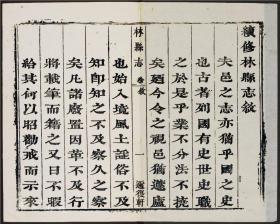 續修林縣志敘
夫邑之志亦猶乎國之史
也古者列國有史世史職
之於是乎業不分法不撓
矣廼今令之視邑猶蘧廬
林縣志
敘
一
也始入境風土謡俗不及
知即知之不及察久之察
矣凡諸廢置因革不及行
將載筆而籍之又日不暇
給其何以昭勸戒而示來